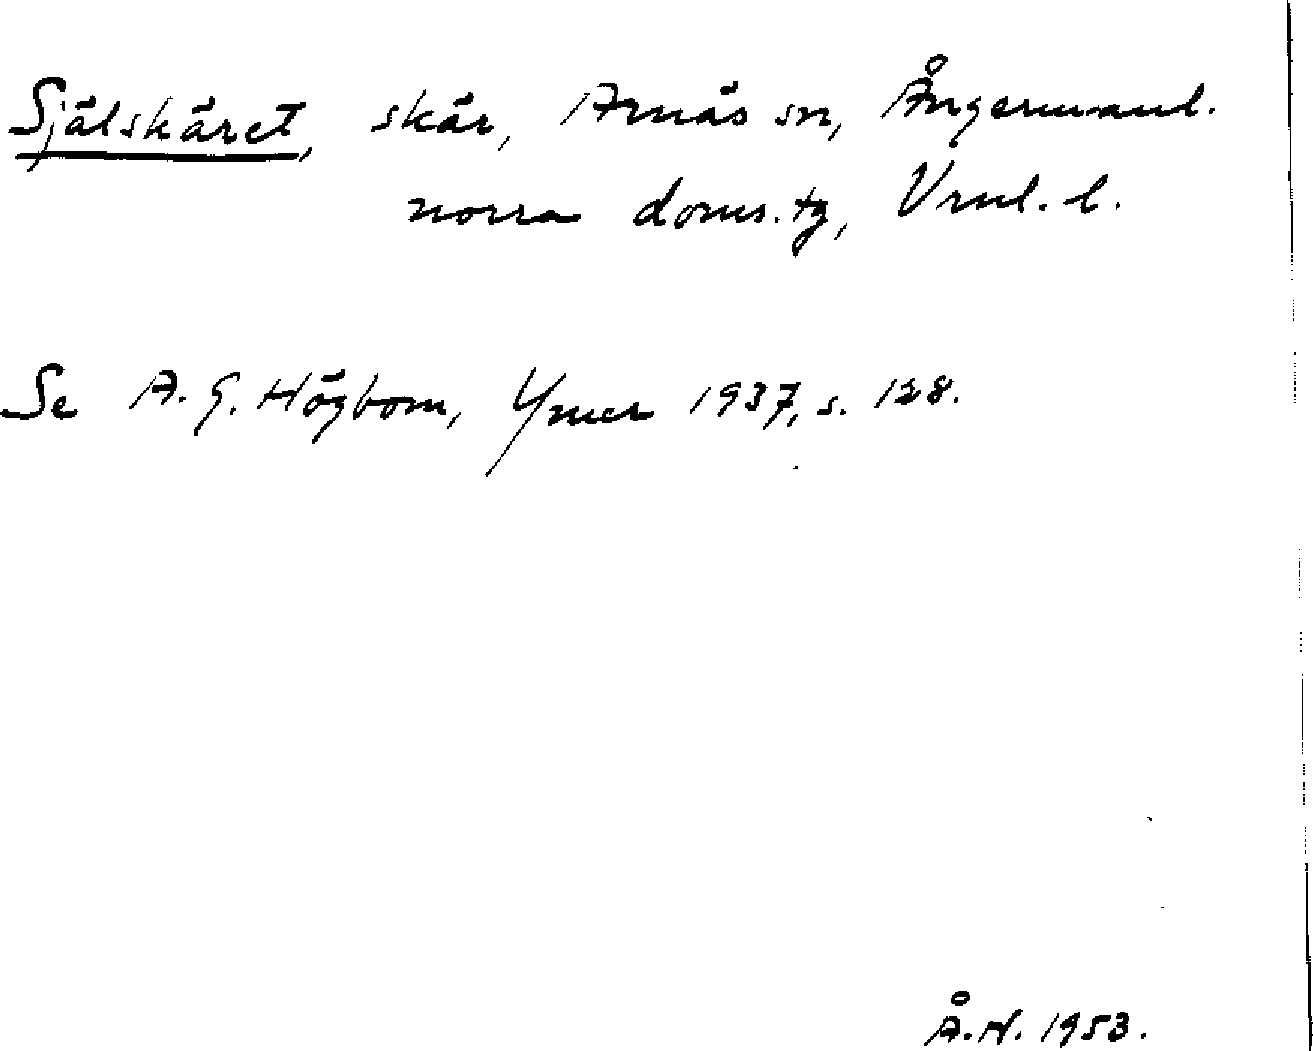 Själskäret, skär, Arnäs sn, Ångermanl.
norra doms. tg, Vrnl. l.
Se A. G. Högbom, Ymer 1937, s. 128.
Å. N. 1953.